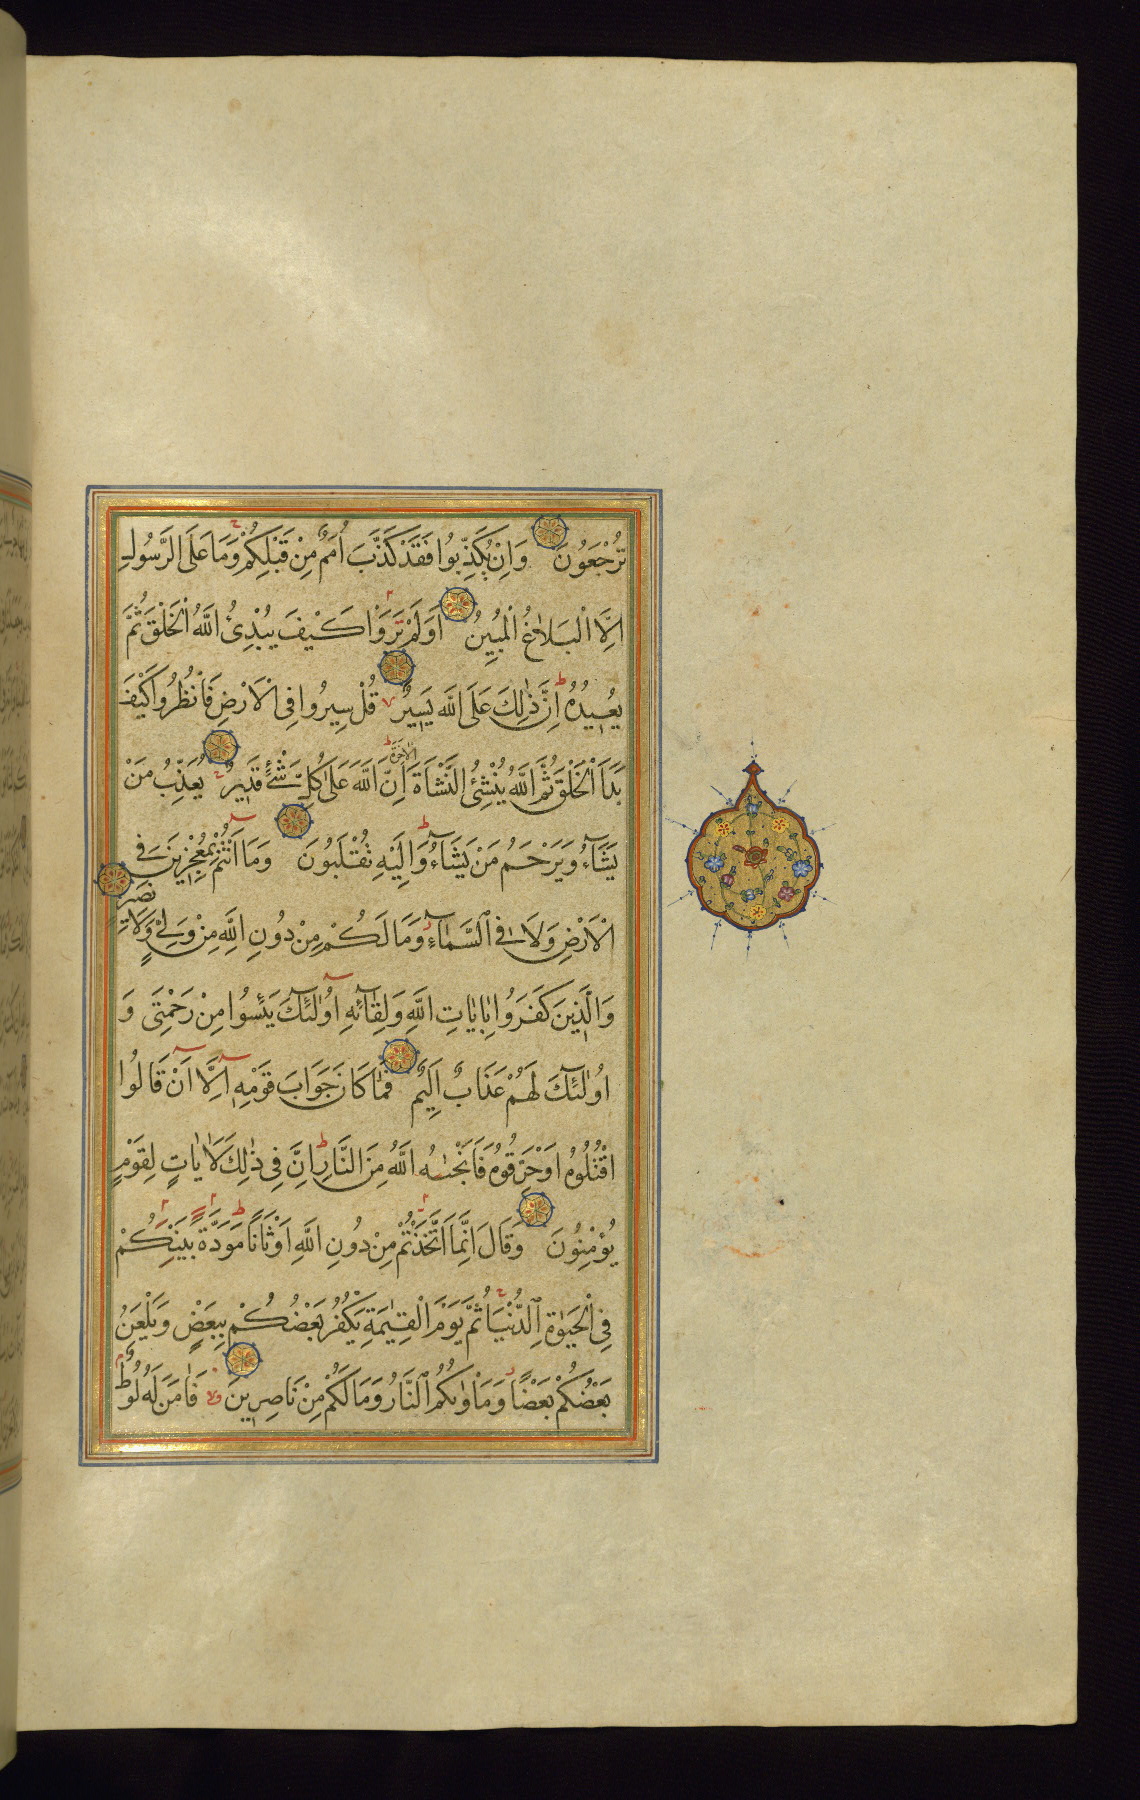 تُرْجَعُونَ وَاِنْ يُكَذِّبُوا فَقَدْ كَذَّبَ اُمَمٌ مِنْ قَبْلِكُمْ وَمَا عَلَى الرَّسُولِ
اِلَّا الْبَلَاغُ الْمُبِينُ اَوَلَمْ تَرَوْا كَيْفَ يُبْدِئُ اللَّهُ الْخَلْقَ ثُمَّ
يُعِيدُهُ اِنَّ ذٰلِكَ عَلَى اللَّهِ يَسِيرٌ قُلْ سِيرُوا فِى الْاَرْضِ فَانْظُرُوا كَيْفَ
بَدَاَ الْخَلْقَ ثُمَّ اللَّهُ يُنْشِئُ النَّشْاَةَ الْاٰخِرَةَ اِنَّ اللَّهَ عَلٰى كُلِّ شَيْءٍ قَدِيرٌ يُعَذِّبُ مَنْ
يَشَآءُ وَيَرْحَمُ مَنْ يَشَآءُ وَاِلَيْهِ تُقْلَبُونَ وَمَا اَنْتُمْ بِمُعْجِزِينَ فِى
الْاَرْضِ وَلَا فِى السَّمَآءِ وَمَا لَكُمْ مِنْ دُونِ اللَّهِ مِنْ وَلِيٍّ وَلَا نَصِيرٍ
وَالَّذِينَ كَفَرُوا بِاٰيَاتِ اللَّهِ وَلِقَآئِهِ اُولٰٓئِكَ يَئِسُوا مِنْ رَحْمَتِى وَ
اُولٰٓئِكَ لَهُمْ عَذَابٌ اَلِيمٌ فَمَا كَانَ جَوَابَ قَوْمِهِ اِلَّا اَنْ قَالُوا
اقْتُلُوهُ اَوْ حَرِّقُوهُ فَاَنْجٰىهُ اللَّهُ مِنَ النَّارِ اِنَّ فِى ذٰلِكَ لَاٰيَاتٍ لِقَوْمٍ
يُؤْمِنُونَ وَقَالَ اِنَّمَا اتَّخَذْتُمْ مِنْ دُونِ اللَّهِ اَوْثَانًا مَوَدَّةَ بَيْنِكُمْ
فِى الْحَيٰوةِ الدُّنْيَا ثُمَّ يَوْمَ الْقِيٰمَةِ يَكْفُرُ بَعْضُكُمْ بِبَعْضٍ وَيَلْعَنُ
بَعْضُكُمْ بَعْضًا وَمَاْوٰىكُمُ النَّارُ وَمَا لَكُمْ مِنْ نَاصِرِينَ فَاٰمَنَ لَهُ لُوطٌ